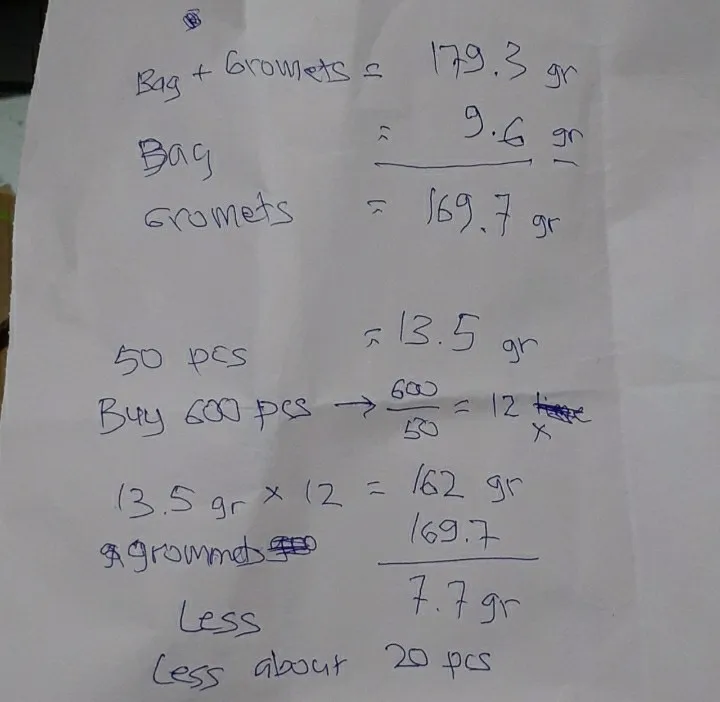 Bag + Gromets = 179.3 gr
Bag = 9.6 gr
Gromets = 169.7 gr
50 pcs = 13.5 gr
Buy 600 pcs → 600/50 = 12 x
13.5 gr × 12 = 162 gr
grommets 169.7
7.7 gr
Less
Less about 20 pcs